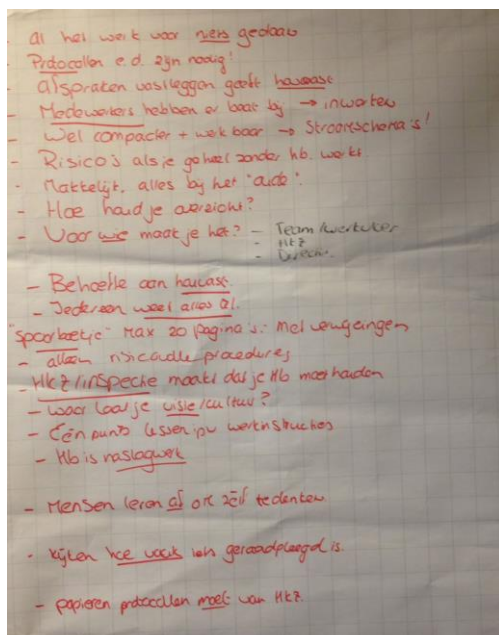 - al het werk voor niets gedaan
- Protocollen e.d. zijn nodig!
- afspraken vastleggen geeft houvast
- Medewerkers hebben er baat bij → inwerken
- Wel compacter + werkbaar → Stroomschema's!
- Risico's als je geheel zonder hb. werkt
- Makkelijk, alles bij het "oude".
- Hoe houd je overzicht?
- Voor wie maak je het? - Team/werkvloer
- HKZ
- Behoefte aan houvast.
- Iedereen weet alles al.
"Spoorboekje" Max 20 pagina's: met verwijzingen
- alleen risicovolle procedures
- HKZ/inspectie maakt dat je Hb moet houden
- waar laat je visie/cultuur?
- Één punts lessen ipv werkinstructies
- Hb is naslagwerk
- Mensen leren af om zélf te denken
- kijken hoe vaak iets geraadpleegd is.
- papieren protocollen moet van HKZ.